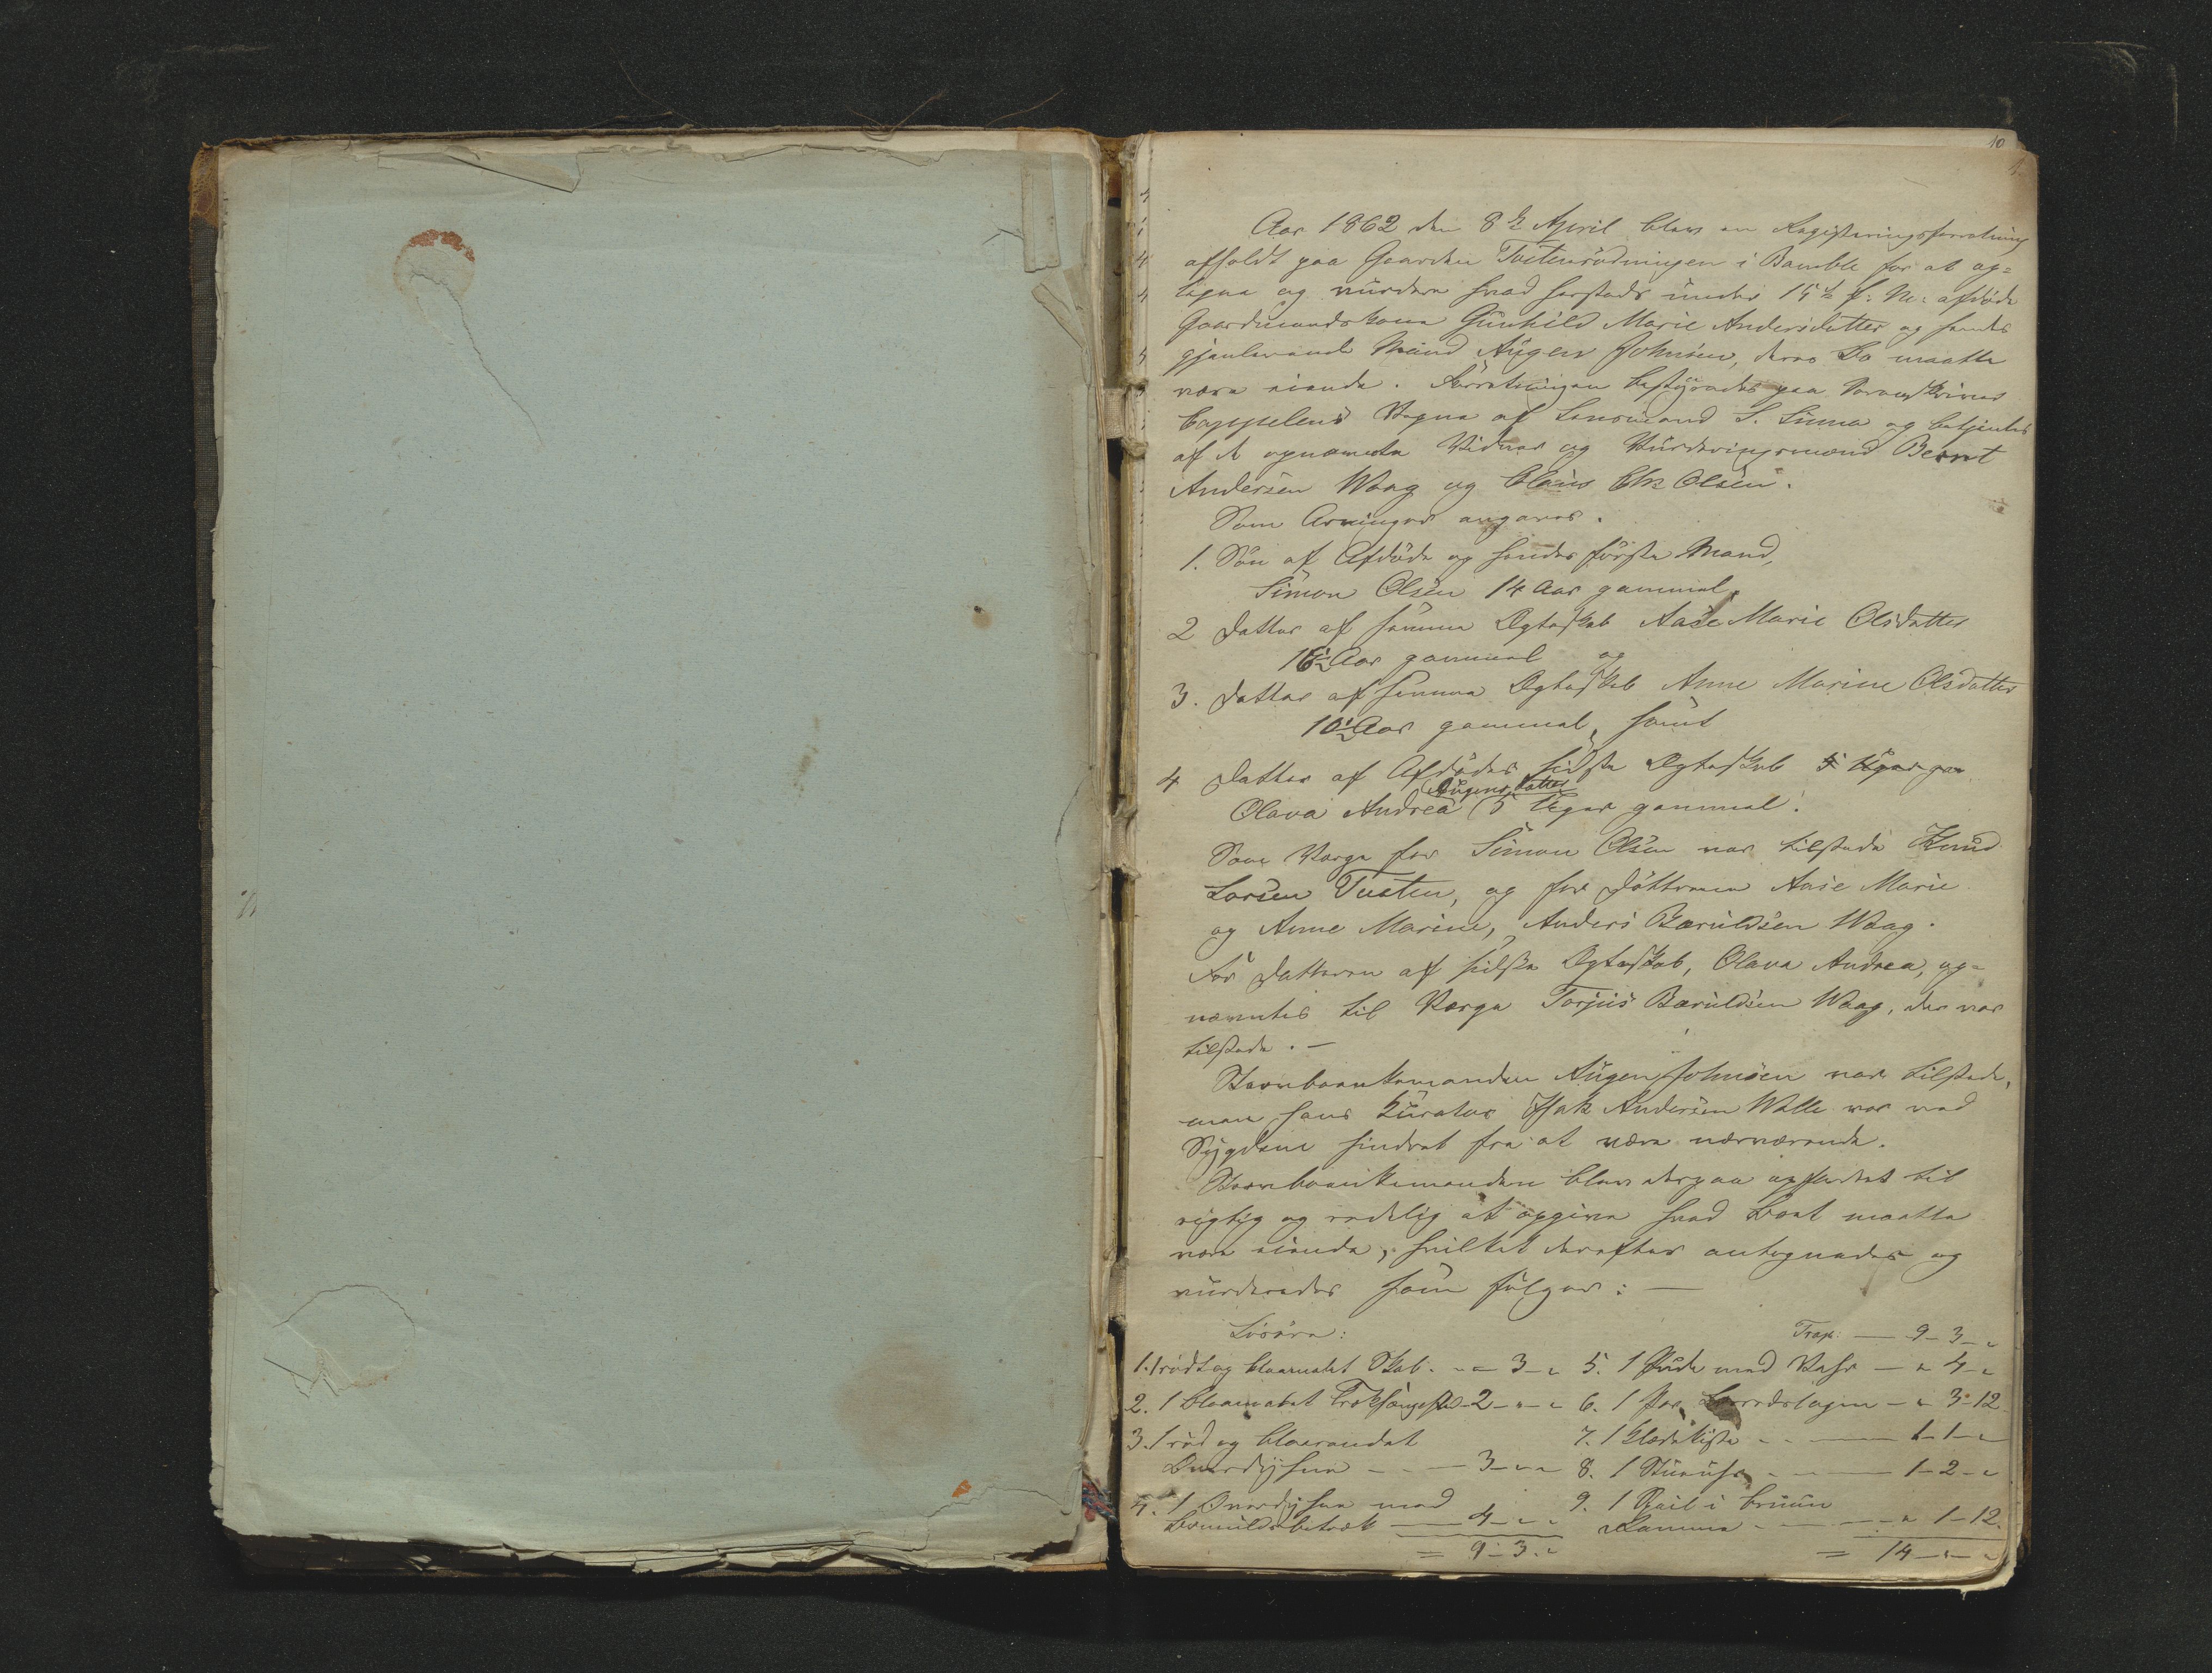 10
Aar 1862 den 8de April blev en Registeringsforretning
afholdt paa Gaarden Tvitenrødningen i Bamble for at op=
tegne og vurdere hvad herstads under 15de f: M: afdøde
Gaardmandskone Gunhild Marie Andersdatter og hendes
gjenlevende Mand Augen Johnsen, deres Bo maatte
være eiende. Forretningen bestyredes paa Sorenskriver
Cappelens Vegne af Lensmand S. Linna og betjentes
af de opnævnte Vidner og Vurderingsmænd Bernt
Andersen Waag og Claus Chr Olsen.
Som Arvinger angaves.
1. Søn af Afdøde og hendes første Mand,
Simon Olsen 14 Aar gammel,
2 Datter af samme Ægteskab Aase Marie Olsdatter
16 Aar gammel og
3. Datter af samme Ægteskab Anne Marine Olsdatter
10 Aar gammel, samt
4 Datter af Afdødes sidste Ægteskab 5 Uger ga
Augensdatter
Olava Andrea 5 Uger gammel.
Som Værge for Simon Olsen var tilstede Knud
Larsen Tveten, og for Døttrene Aase Marie
og Anne Marine, Anders Bæruldsen Waag.
For Datteren af sidste Ægteskab, Olava Andrea, op=
nævntes til Værge Torjus Bæruldsen Waag, der var
tilstede. —
Stervboenkemanden Augen Johnsen var tilstede,
men hans Kurator Isak Andersen Valle var ved
Sygdom hindret fra at være nærværende.
Stervboenkemanden blev derpaa opfordret til
rigtig og redelig at opgive hvad Boet maatte
være eiende, hvilket derefter antegnedes og
vurderedes som følger: —
Løsøre:
1. 1 rødt og blaamalet Skab - " - 3 - "
2. 1 blaamalet Træksengested - 2 - " - "
3. 1 rød og blaarandet
Overdyne - - 3 - " - "
4. 1 Overdyne med
Bomuldsbetræk — 4 - " - "
= 9 - 3 - "
Trsp: — 9 - 3 - "
5. 1 Pude med Vaar — " 4 - "
6. 1 Par Lærredslagen - " 3 - 12
7. 1 Klædekiste - - — 1 - 1 - "
8. 1 Stueuhr - - — 1 - 2 - "
9. 1 Speil i bruun
Ramme - — " 1 - 12.
= 14 - " - "